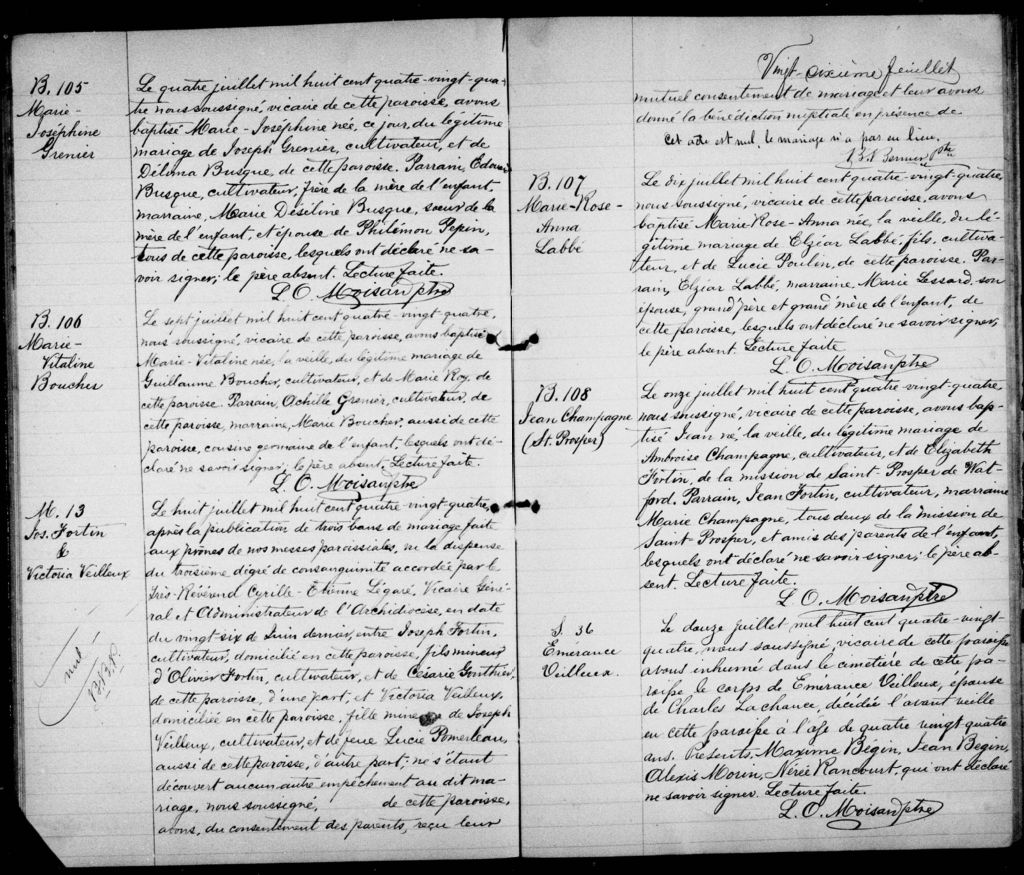 B. 105
Marie
Joséphine
Grenier
Le quatre juillet mil huit cent quatre-vingt-qua-
tre nous soussigné, vicaire de cette paroisse, avons
baptisé Marie-Joséphine née, ce jour, du légitime
mariage de Joseph Grenier, cultivateur, et de
Délima Busque, de cette paroisse. Parrain, Edouard
Busque, cultivateur, frère de la mère de l'enfant,
marraine, Marie Déséline Busque, sœur de la
mère de l'enfant, et épouse de Philémon Pepin,
tous de cette paroisse, lesquels ont déclaré ne sa-
voir signer; le père absent. Lecture faite.
L. O. Moisan ptre
B. 106
Marie-
Vitaline
Boucher
Le sept juillet mil huit cent quatre-vingt-quatre,
nous soussigné, vicaire de cette paroisse, avons baptisé
Marie-Vitaline née, la veille, du légitime mariage de
Guillaume Boucher, cultivateur, et de Marie Roy, de
cette paroisse. Parrain, Achille Grenier, cultivateur, de
cette paroisse, marraine, Marie Boucher, aussi de cette
paroisse, cousine germaine de l'enfant, lesquels ont dé-
claré ne savoir signer; le père absent. Lecture faite.
L. O. Moisan ptre
M. 13
Jos. Fortin
&
Victoria Veilleux
nul
Le huit juillet mil huit cent quatre-vingt-quatre,
après la publication de trois bans de mariage faite
aux prônes de nos messes paroissiales, vu la dispense
du troisième dégré de consanguinité accordée par le
Très-Révérend Cyrille-Etienne Légaré, Vicaire Géné-
ral et Administrateur de l'Archidiocèse, en date
du vingt-six de Juin dernier, entre Joseph Fortin,
cultivateur, domicilié en cette paroisse, fils mineur
d'Olivier Fortin, cultivateur, et de Césarie Gonthier,
de cette paroisse, d'une part, et Victoria Veilleux,
domiciliée en cette paroisse, fille mineure de Joseph
Veilleux, cultivateur, et de feue Lucie Pomerleau
aussi de cette paroisse, d'autre part; ne s'étant
découvert aucun autre empêchement au dit ma-
riage, nous soussigné, de cette paroisse,
avons, du consentement des parents, reçu leur
Vingt-sixième feuillet
mutuel consentement de mariage et leur avons
donné la bénédiction nuptiale en présence de
Cet acte est nul, le mariage n'a pas eu lieu.
Bernier Ptre
B. 107
Marie-Rose-
Anna
Labbé
Le dix juillet mil huit cent quatre-vingt-quatre,
nous soussigné, vicaire de cette paroisse, avons
baptisé Marie-Rose-Anna née, la veille, du lé-
gitime mariage de Elzéar Labbé, fils, cultiva-
teur, et de Lucie Poulin, de cette paroisse. Par-
rain, Elzéar Labbé, marraine, Marie Lessard, son
épouse, grand'père et grand'mère de l'enfant, de
cette paroisse, lesquels ont déclaré ne savoir signer,
le père absent. Lecture faite.
L. O. Moisan ptre
B. 108
Jean Champagne
(St. Prosper)
Le onze juillet mil huit cent quatre-vingt-quatre
nous soussigné, vicaire de cette paroisse, avons bap-
tisé Jean né, la veille, du légitime mariage de
Ambroise Champagne, cultivateur, et de Elizabeth
Fortin, de la mission de Saint-Prosper de Wat-
ford. Parrain, Jean Fortin, cultivateur, marraine
Marie Champagne, tous deux de la mission de
Saint-Prosper, et amis des parents de l'enfant,
lesquels ont déclaré ne savoir signer; le père ab-
sent. Lecture faite.
L. O. Moisan ptre
S. 36
Emérance
Veilleux.
Le douze juillet mil huit cent quatre-vingt-
quatre, nous soussigné, vicaire de cette paroisse
avons inhumé dans le cimetière de cette pa-
roisse le corps de Emérance Veilleux, épouse
de Charles Lachance, décédée l'avant veille
en cette paroisse à l'age de quatre vingt quatre
ans. Présents, Maxime Bégin, Jean Bégin,
Alexis Morin, Nérée Rancourt, qui ont déclaré
ne savoir signer. Lecture faite.
L. O. Moisan ptre